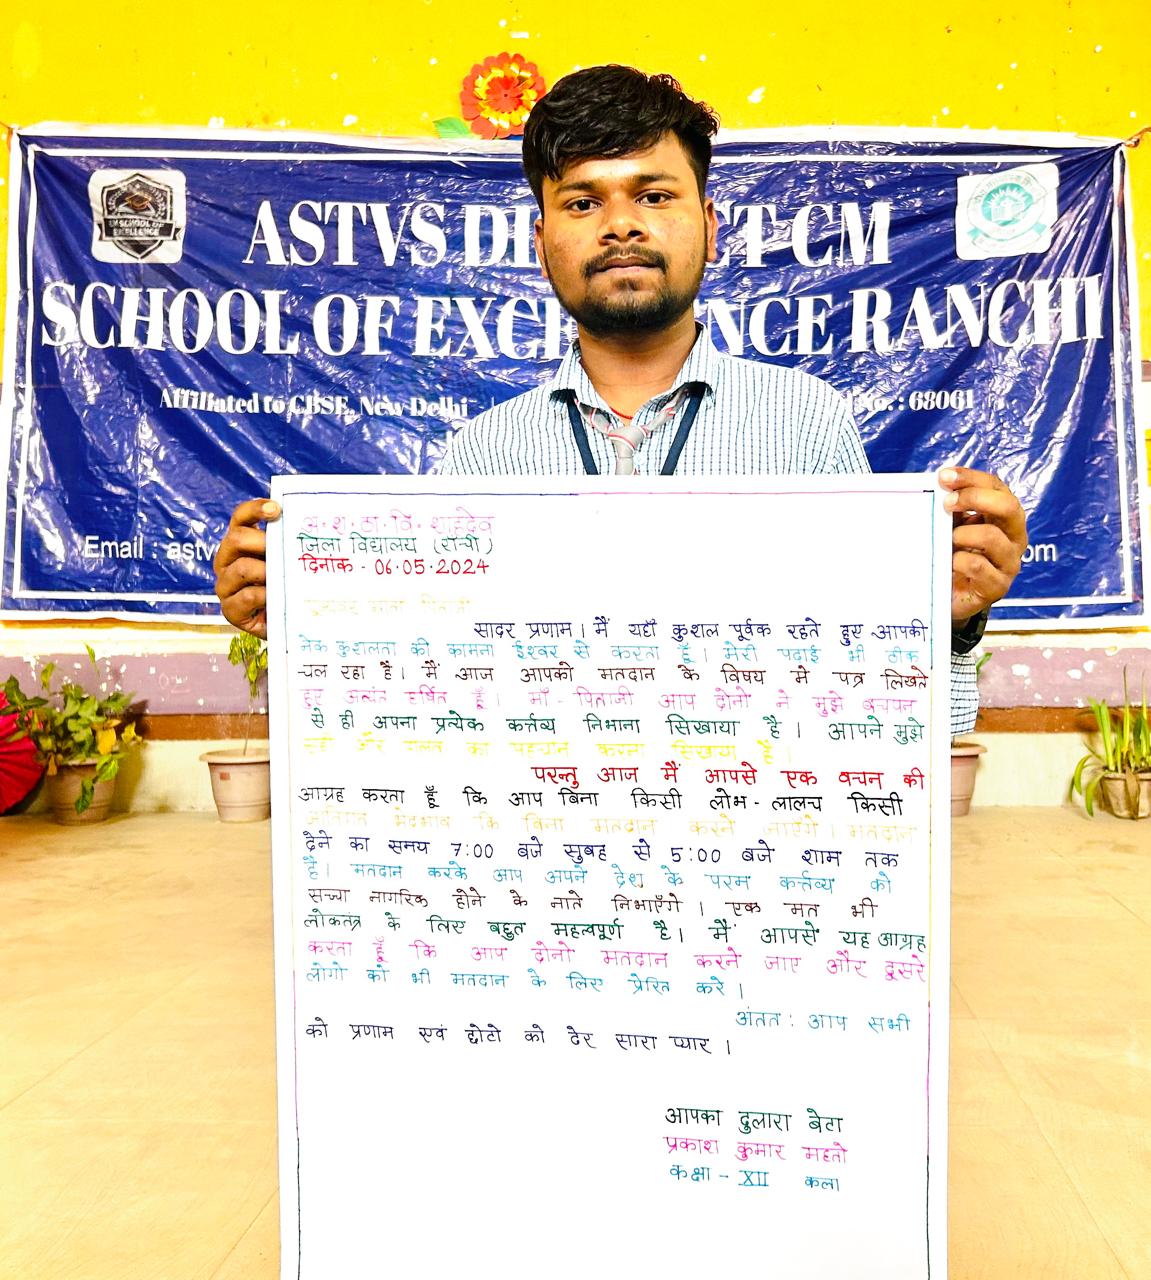 ASTVS DI CT CM
SCHOOL OF EXCE NCE RANCHI
SCHOOL OF
EXCELLENCE
Affiliated to CBSE, New Delhi No.: 68061
Email : astv om
अ.श.ठा.वि. शाहदेव
जिला विद्यालय (राँची)
दिनांक - 06.05.2024
पूज्यवर माता पिताजी
सादर प्रणाम। मैं यहाँ कुशल पूर्वक रहते हुए आपकी
नेक कुशलता की कामना ईश्वर से करता हूँ। मेरी पढ़ाई भी ठीक
चल रहा है। मैं आज आपको मतदान के विषय मे पत्र लिखते
हुए अत्यंत हर्षित हूँ। माँ - पिताजी आप दोनो ने मुझे बचपन
से ही अपना प्रत्येक कर्त्तव्य निभाना सिखाया है। आपने मुझे
सही और गलत का पहचान करना सिखाया है।
परन्तु आज मैं आपसे एक वचन की
आग्रह करता हूँ कि आप बिना किसी लोभ - लालच किसी
जातिगत भेदभाव कि बिना मतदान करने जाएंगे। मतदान
देने का समय 7:00 बजे सुबह से 5:00 बजे शाम तक
है। मतदान करके आप अपने देश के परम कर्त्तव्य को
सच्चा नागरिक होने के नाते निभाएँगे। एक मत भी
लोकतंत्र के लिए बहुत महत्वपूर्ण है। मैं आपसे यह आग्रह
करता हूँ कि आप दोनो मतदान करने जाए और दूसरे
लोगो को भी मतदान के लिए प्रेरित करे।
अंतत : आप सभी
को प्रणाम एवं छोटो को ढेर सारा प्यार।
आपका दुलारा बेटा
प्रकाश कुमार महतो
कक्षा - XII कला